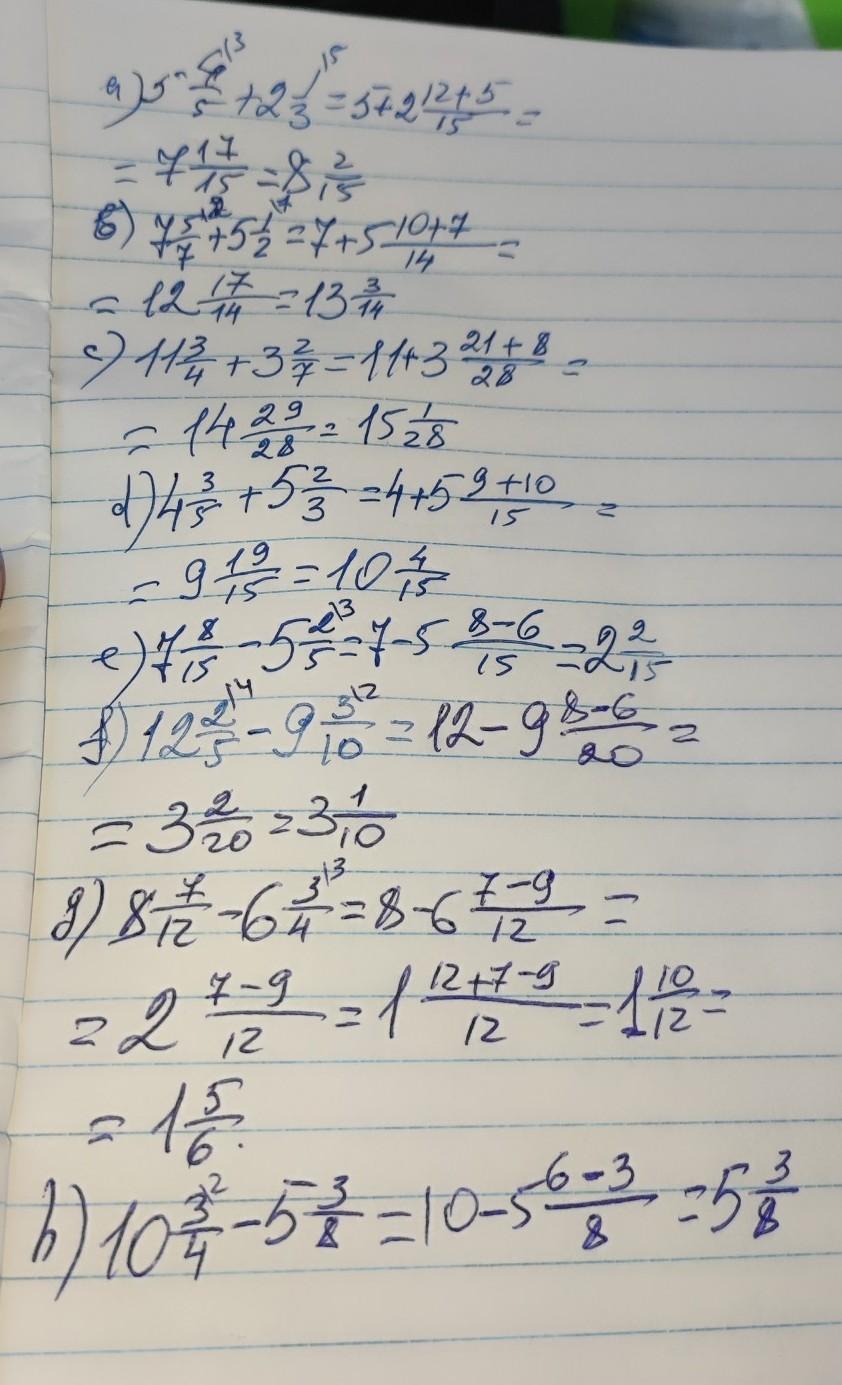 a) 5 4/5 \3 + 2 1/3 \5 = 5+2 12+5/15 =
= 7 17/15 = 8 2/15
b) 7 5/7 \2 + 5 1/2 \7 = 7+5 10+7/14 =
= 12 17/14 = 13 3/14
c) 11 3/4 + 3 2/7 = 11+3 21+8/28 =
= 14 29/28 = 15 1/28
d) 4 3/5 + 5 2/3 = 4+5 9+10/15 =
= 9 19/15 = 10 4/15
e) 7 8/15 - 5 2/5 \3 = 7-5 8-6/15 = 2 2/15
f) 12 2/5 \4 - 9 3/10 \2 = 12-9 8-6/20 =
= 3 2/20 = 3 1/10
g) 8 7/12 - 6 3/4 \3 = 8-6 7-9/12 =
= 2 7-9/12 = 1 12+7-9/12 = 1 10/12 =
= 1 5/6.
h) 10 3/4 \2 - 5 3/8 = 10-5 6-3/8 = 5 3/8